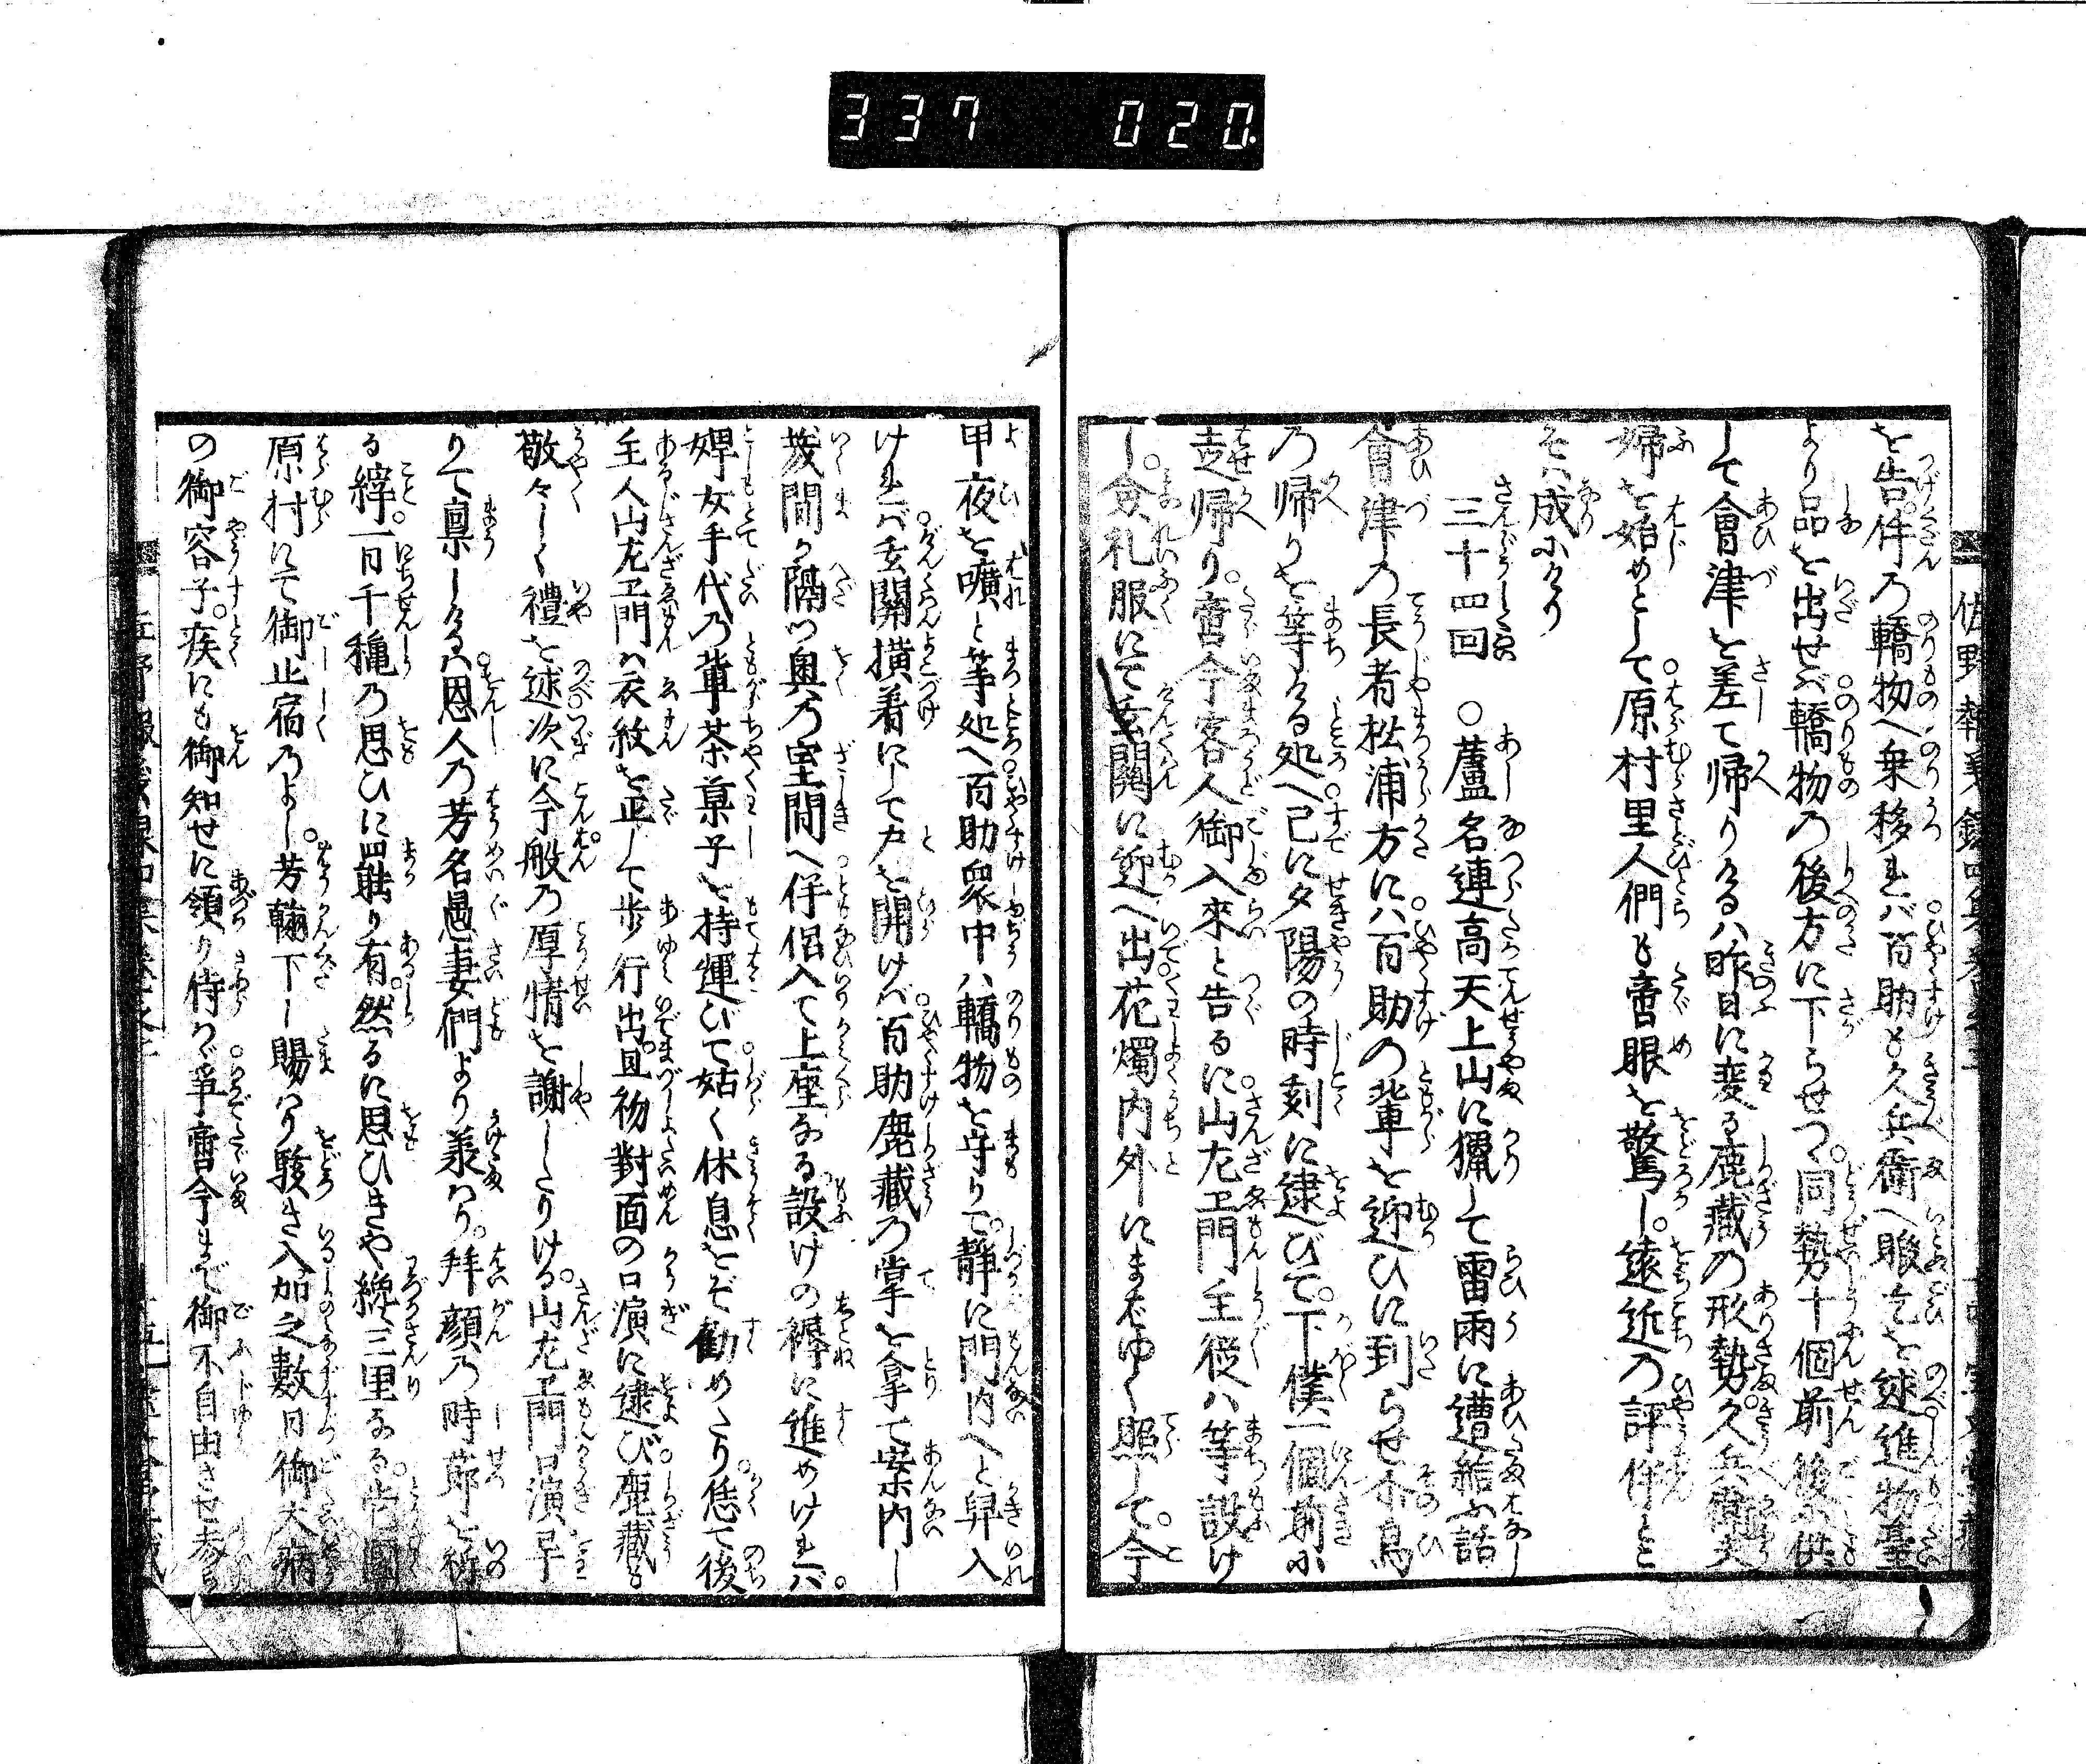 337 020
を告。件の轎物へ乗移れバ。百助も久兵衛へ暇乞を述。進物臺
より品を出せバ。轎物の後方に下らせつ。同勢十個前後に供
して會津を差て帰りける。昨日に変る鹿藏の形勢。久兵衛夫
婦を始めとして。原村里人們も啻眼を驚し。遠近の評伴とこ
そハ成にけり
三十四回 ○蘆名連高天上山に獵して雷雨に遭結ふ話
會津の長者松浦方にハ。百助の輩を迎ひに到らせ。本鳥
の帰りを等ける処へ。已に夕陽の時刻に逮びて。下僕一個前に
走帰り。啻今客人御入來と告るに。山左ヱ門主從ハ等設け
し。僉礼服にて玄關に迎へ出。花燭内外にまばゆく照して。今
甲夜を曠と等処へ。百助衆中ハ轎物を守りて。静に門内へと舁入
けれバ。玄關横着にして戸を開けバ。百助鹿藏の掌を拿て案内し
幾間か隔つ奥の室間へ伴侶入て。上座なる設けの褥に進めけれバ。
婢女手代の輩茶菓子を持運びて。姑く休息をぞ勸めたり。恁て後
主人山左ヱ門ハ衣紋を正して歩行出。且初對面の口演に逮び。鹿藏も
敬々しく禮を述。次に今般の厚情を謝したりける。山左ヱ門口演早
りて稟しけるハ。恩人の芳名愚妻們より羨ハり。拜顔の時節を祈
る縡。一日千穐の思ひに罷り有。然るに思ひきや。纔三里なる當國
原村にて御止宿のよし。芳翰下し賜ハり駭き入。加之數日御大病
の御容子。疾にも御知せに領り侍ハゞ。爭啻今まで御不自由させ参ら